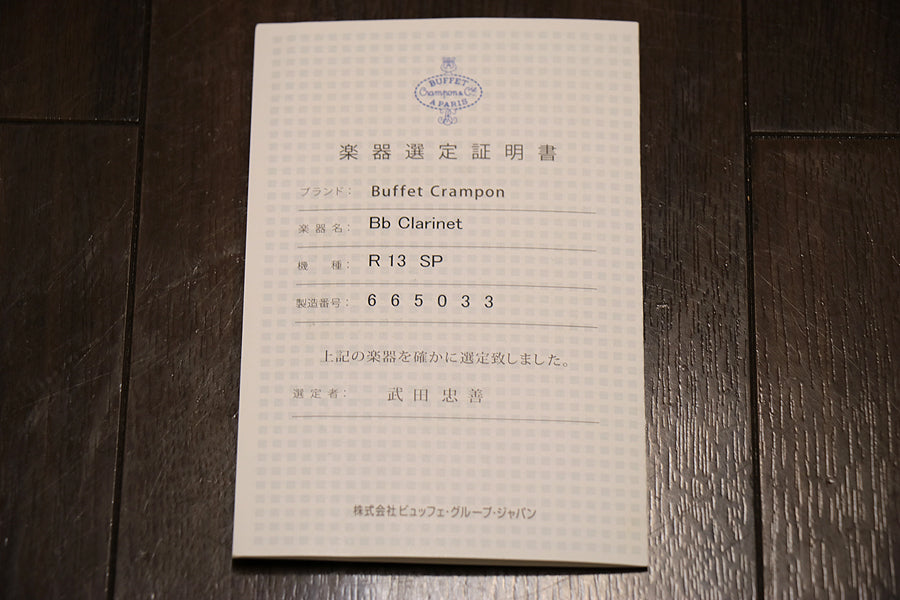 BUFFET
Crampon & Cie
A PARIS
楽器選定証明書
ブランド： Buffet Crampon
楽器名： Bb Clarinet
機　種： R 13 SP
製造番号： 6 6 5 0 3 3
上記の楽器を確かに選定致しました。
選定者： 武田忠善
株式会社ビュッフェ・グループ・ジャパン